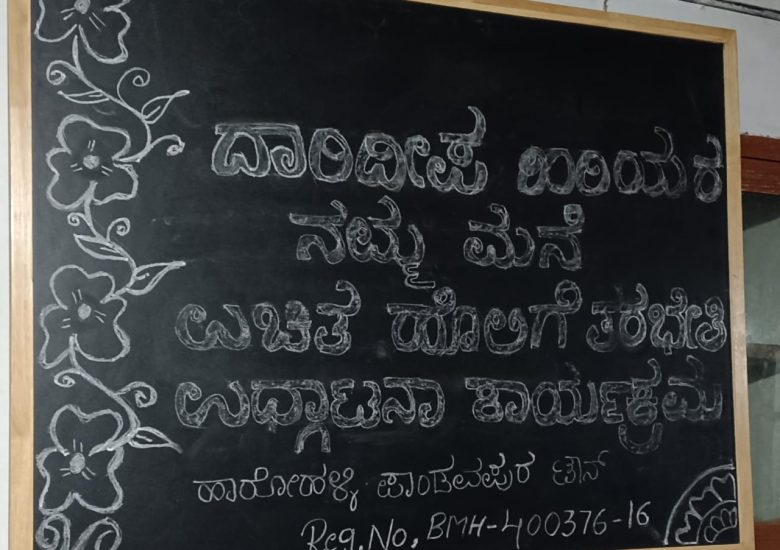 ದಾರಿದೀಪ ಹಿರಿಯರ
ನಮ್ಮ ಮನೆ
ಉಚಿತ ಹೊಲಿಗೆ ತರಬೇತಿ
ಉಧ್ಘಾಟನಾ ಕಾರ್ಯಕ್ರಮ
ಹಾರೋಹಳ್ಳಿ ಪಾಂಡವಪುರ ಟೌನ್
Reg.No, BMH-400376-16